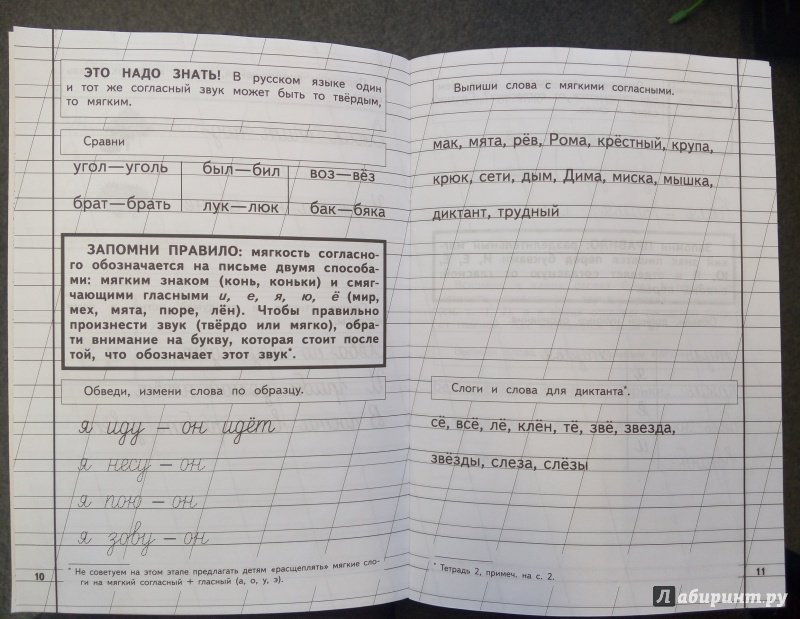 ЭТО НАДО ЗНАТЬ! В русском языке один
и тот же согласный звук может быть то твёрдым,
то мягким.
Сравни
угол—уголь был—бил воз—вёз
брат—брать лук—люк бак—бяка
ЗАПОМНИ ПРАВИЛО: мягкость согласно-
го обозначается на письме двумя способа-
ми: мягким знаком (конь, коньки) и смяг-
чающими гласными и, е, я, ю, ё (мир,
мех, мята, пюре, лён). Чтобы правильно
произнести звук (твёрдо или мягко), обра-
ти внимание на букву, которая стоит после
той, что обозначает этот звук*.
Обведи, измени слова по образцу.
я иду — он идёт
я несу — он
я пою — он
я зову — он
* Не советуем на этом этапе предлагать детям «расщеплять» мягкие сло-
ги на мягкий согласный + гласный (а, о, у, э).
10
Выпиши слова с мягкими согласными.
мак, мята, рёв, Рома, крёстный, крупа,
крюк, сети, дым, Дима, миска, мышка,
диктант, трудный
Слоги и слова для диктанта*.
сё, всё, лё, клён, тё, звё, звезда,
звёзды, слеза, слёзы
* Тетрадь 2, примеч. на с. 2.
11
Лабиринт.ру